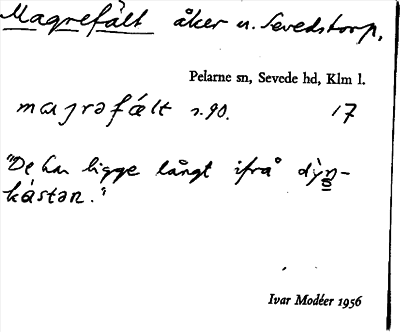 Magrefält åker u. Sevedstorp.
Pelarne sn, Sevede hd, Klm l.
magrəfált s.90. 17
"De har ligge långt ifrå dỳn-
kástən."
Ivar Modéer 1956